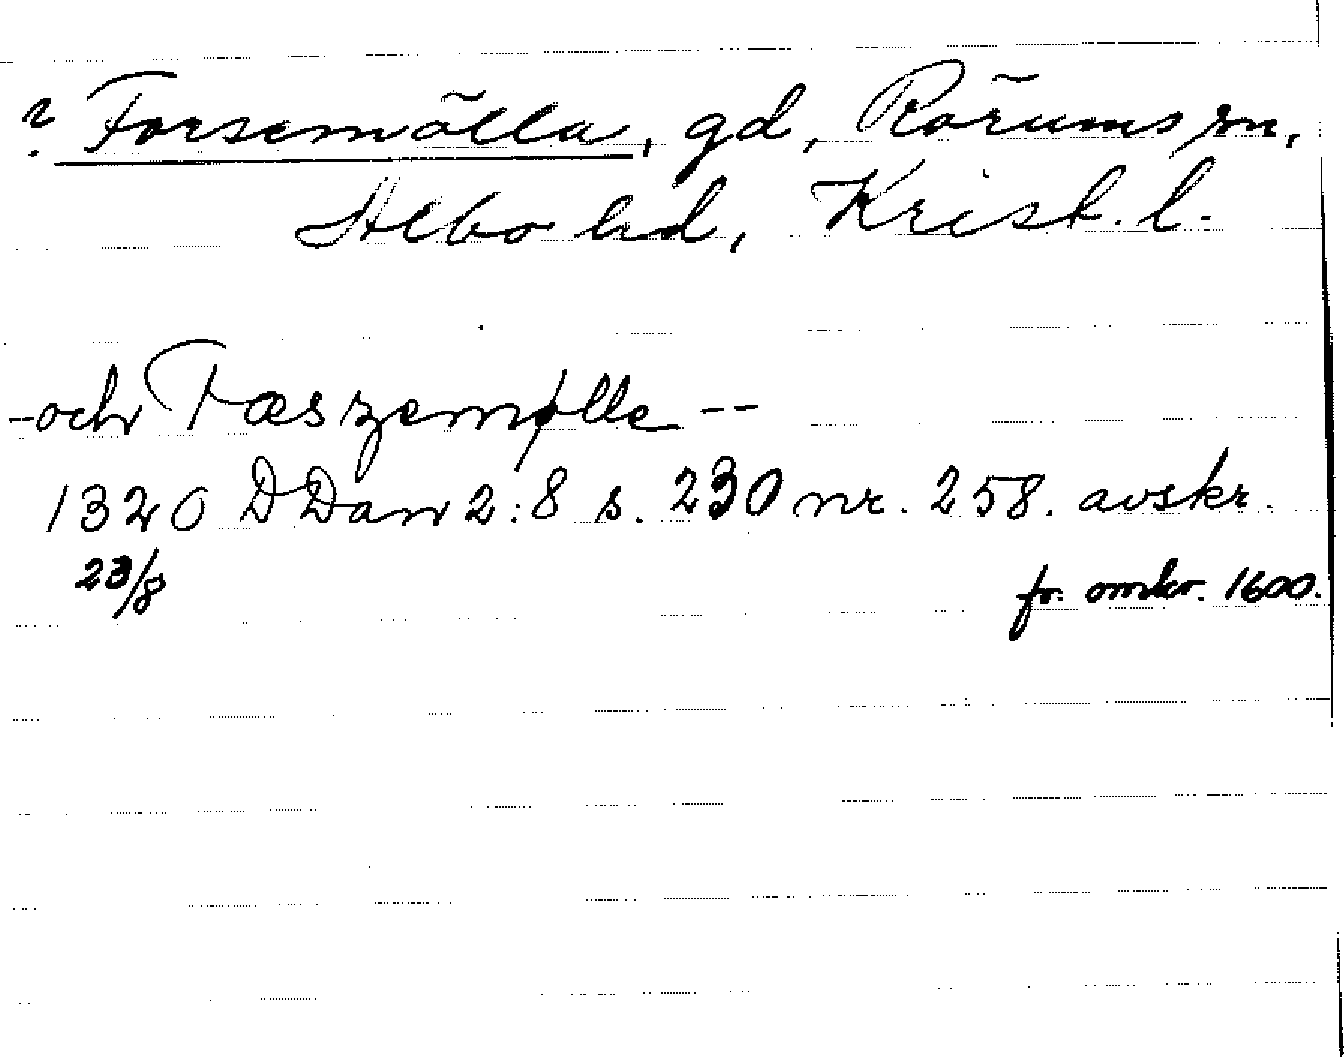 ? Forsemölla, gd, Rörums sn,
Albo hd, Krist. l.
- och Fæszemølle --
1320 DDan 2:8 s. 230 nr. 258. avskr.
23/8 fr. omkr. 1600.